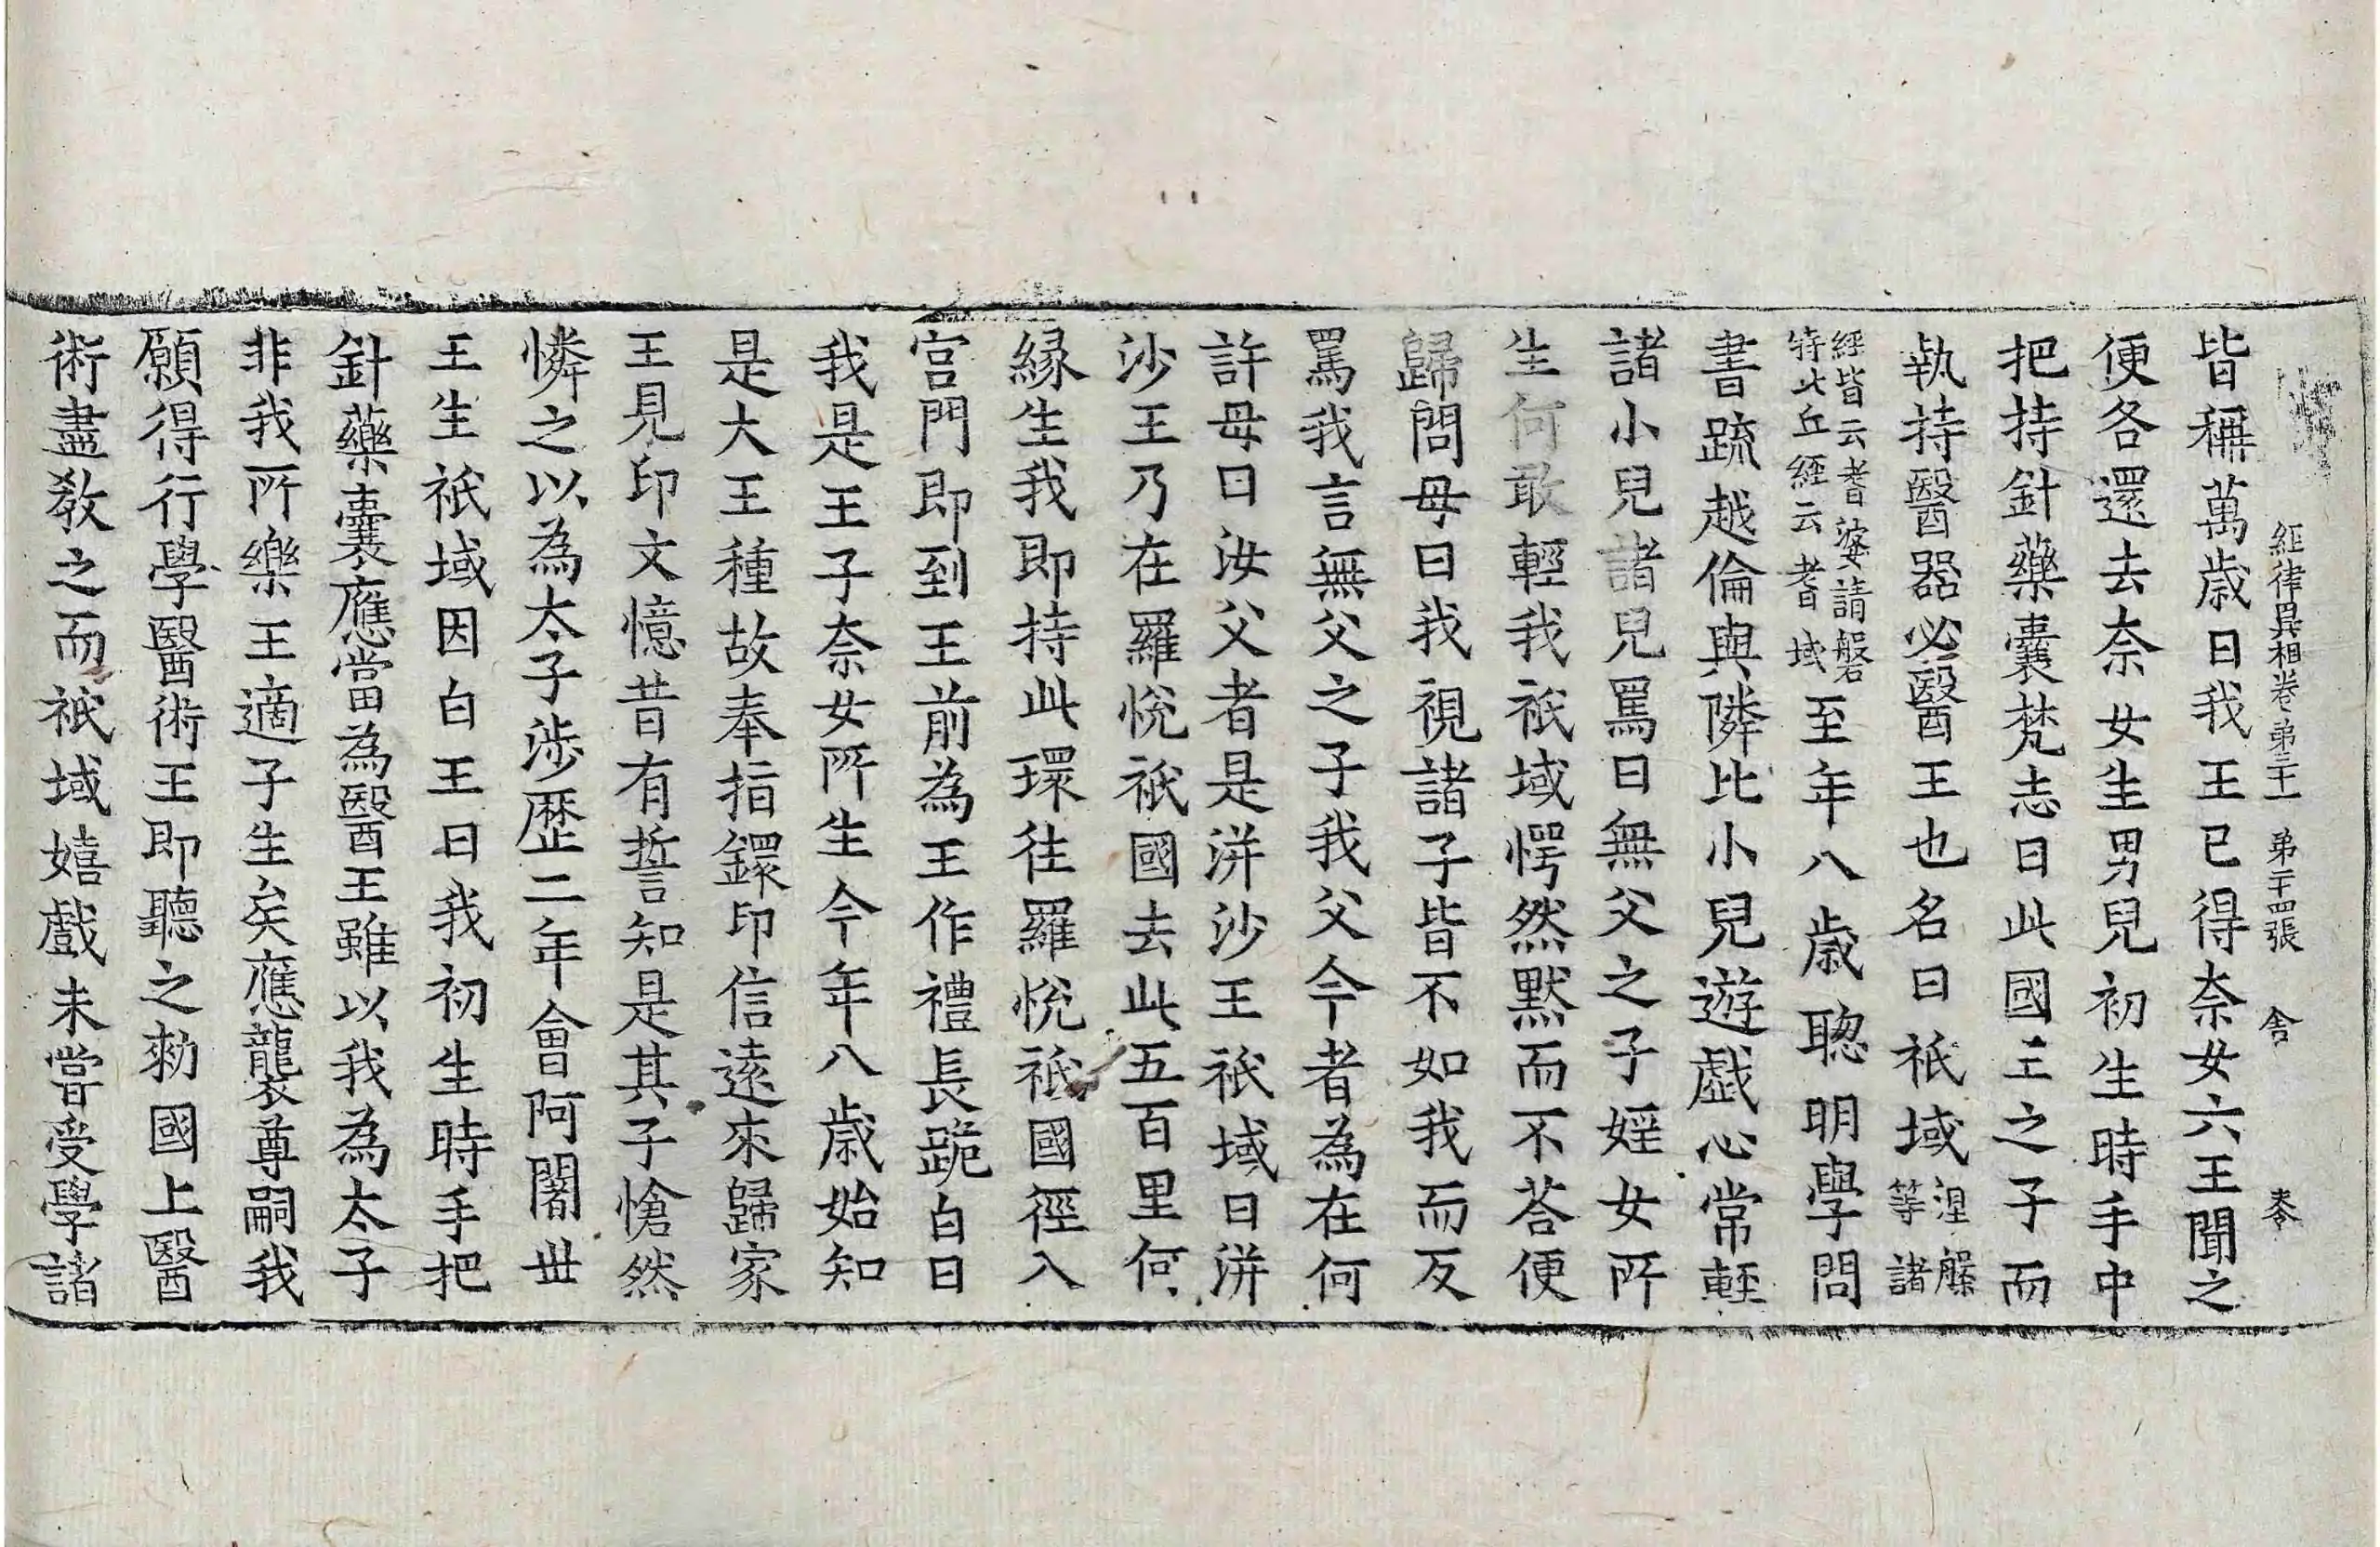 經律異相卷第三十一 第二十四張 舎 叁
皆稱萬歲曰我王已得奈女六王聞之
便各還去奈女生男兒初生時手中
把持針藥囊梵志曰此國王之子而
執持醫器必醫王也名曰祇域涅槃等諸
經皆云耆婆請磐特比丘經云耆域至年八歲聦明學問
書䟽越倫與隣比小兒遊戲心常輕
諸小兒諸兒罵曰無父之子婬女所
生何敢輕我祇域愕然默而不荅便
歸問母曰我視諸子皆不如我而反
罵我言無父之子我父今者為在何
許母曰汝父者是洴沙王祇域曰洴
沙王乃在羅悅祇國去此五百里何
緣生我即持此環往羅悅祇國徑入
宮門即到王前為王作禮長跪白曰
我是王子奈女所生今年八歲始知
是大王種故奉指鐶印信遠來歸家
王見印文憶昔有誓知是其子愴然
憐之以為太子涉歷二年會阿闍丗
王生祇域因白王曰我初生時手把
針藥囊應當為醫王雖以我為太子
非我所樂王適子生矣應襲尊嗣我
願得行學醫術王即聽之勑國上醫
術盡教之而祇域嬉戲未嘗受學諸